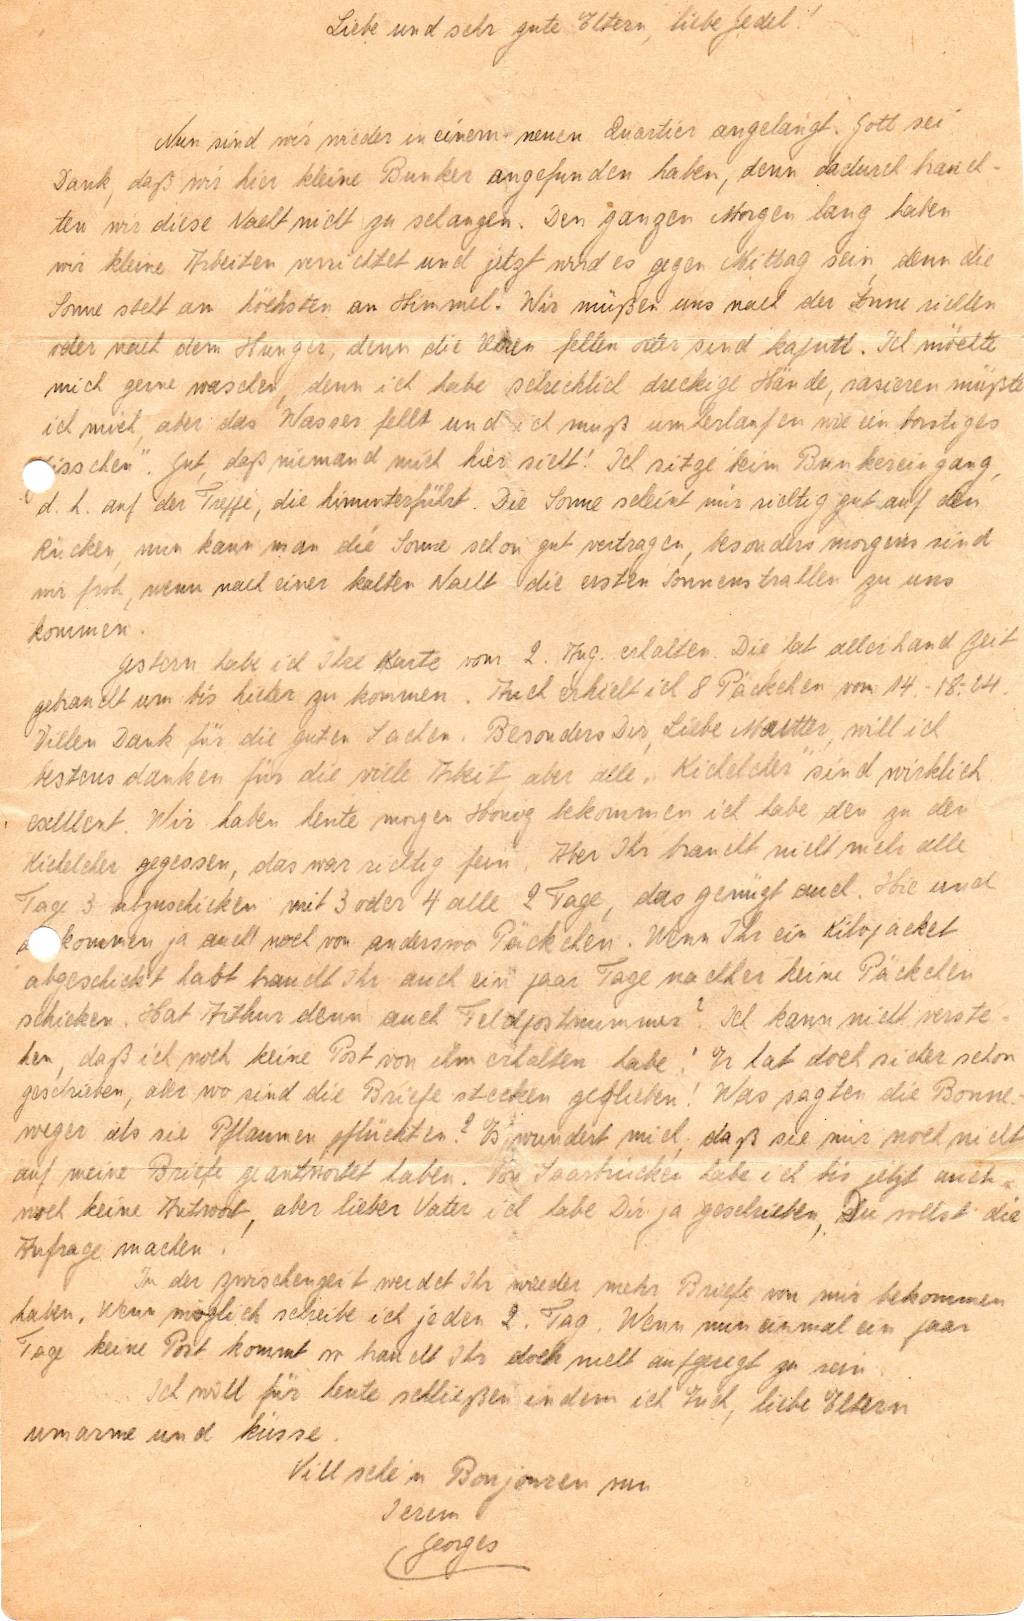 Liebe und sehr gute Eltern, liebe Jedel!
Nun sind wir wieder in einem neuen Quartier angelangt. Gott sei
Dank, daß wir hier kleine Bunker angefunden haben, denn dadurch brauch-
ten wir diese Nacht nicht zu schanzen. Den ganzen Morgen lang haben
wir kleine Arbeiten verrichtet und jetzt wird es gegen Mittag sein, denn die
Sonne steht am höchsten am Himmel. Wir müßen uns nach der Sonne richten
oder nach dem Hunger, denn die Uhren fehlen oder sind kaputt. Ich möchte
mich gerne waschen, denn ich habe schrecklich dreckige Hände, rasieren müßte
ich mich, aber das Wasser fehlt und ich muß umherlaufen wie ein borstiges
. Gut, daß niemand mich hier sieht! Ich sitze beim Bunkereingang,
d. h. auf der Treppe, die hinunterführt. Die Sonne scheint mir richtig gut auf den
Rücken, nun kann man die Sonne schon gut vertragen, besonders morgens sind
wir froh, wenn nach einer kalten Nacht die ersten Sonnenstrahlen zu uns
kommen.
Gestern habe ich Ihre Karte vom 2. Aug. erhalten. Die hat allerhand Zeit
gebraucht um bis hieher zu kommen. Auch erhielt ich 8 Päckchen vom 14.-18.-24.
Villen Dank für die guten Sachen. Besonders Dir, Liebe Mutter, will ich
bestens danken für die viele Arbeit, aber alle "Kichelcher" sind wirklich
exellent. Wir haben heute morgen Honig bekommen ich habe den zu den
Kichelcher gegessen, das war richtig fein. Aber Ihr braucht nicht mehr alle
Tage 3 abzuschicken mit 3 oder 4 alle 2 Tage, das genügt auch. Hie und
da kommen ja auch noch von anderswo Päckchen. Wenn Ihr ein Kilopacket
abgeschickt habt braucht Ihr auch ein paar Tage nachher keine Päckchen
schicken. Hat Arthur denn auch Feldpostnummer? Ich kann nicht verste-
hen, daß ich noch keine Post von ihm erhalten habe! Er hat doch sicher schon
geschrieben, aber wo sind die Briefe stecken geblieben! Was sagten die Bonne-
weger als sie Pflaumen pflückten? Es wundert mich, daß sie mir noch nicht
auf meine Briefe geantwortet haben. Von Saarbrücken habe ich bis jetzt auch
noch keine Antwort, aber lieber Vater ich habe Dir ja geschrieben, Du sollst die
Anfrage machen.
In der zwischenzeit werdet Ihr wieder mehr Briefe von mir bekommen
haben. Wenn möglich schreibe ich jeden 2. Tag. Wenn nun einmal ein paar
Tage keine Post kommt so braucht Ihr doch nicht aufgeregt zu sein.
Ich will für heute schließen indem ich Euch, liebe Eltern
umarme und küsse.
Vill schéin Bonjouren vun
Ierem
Georges